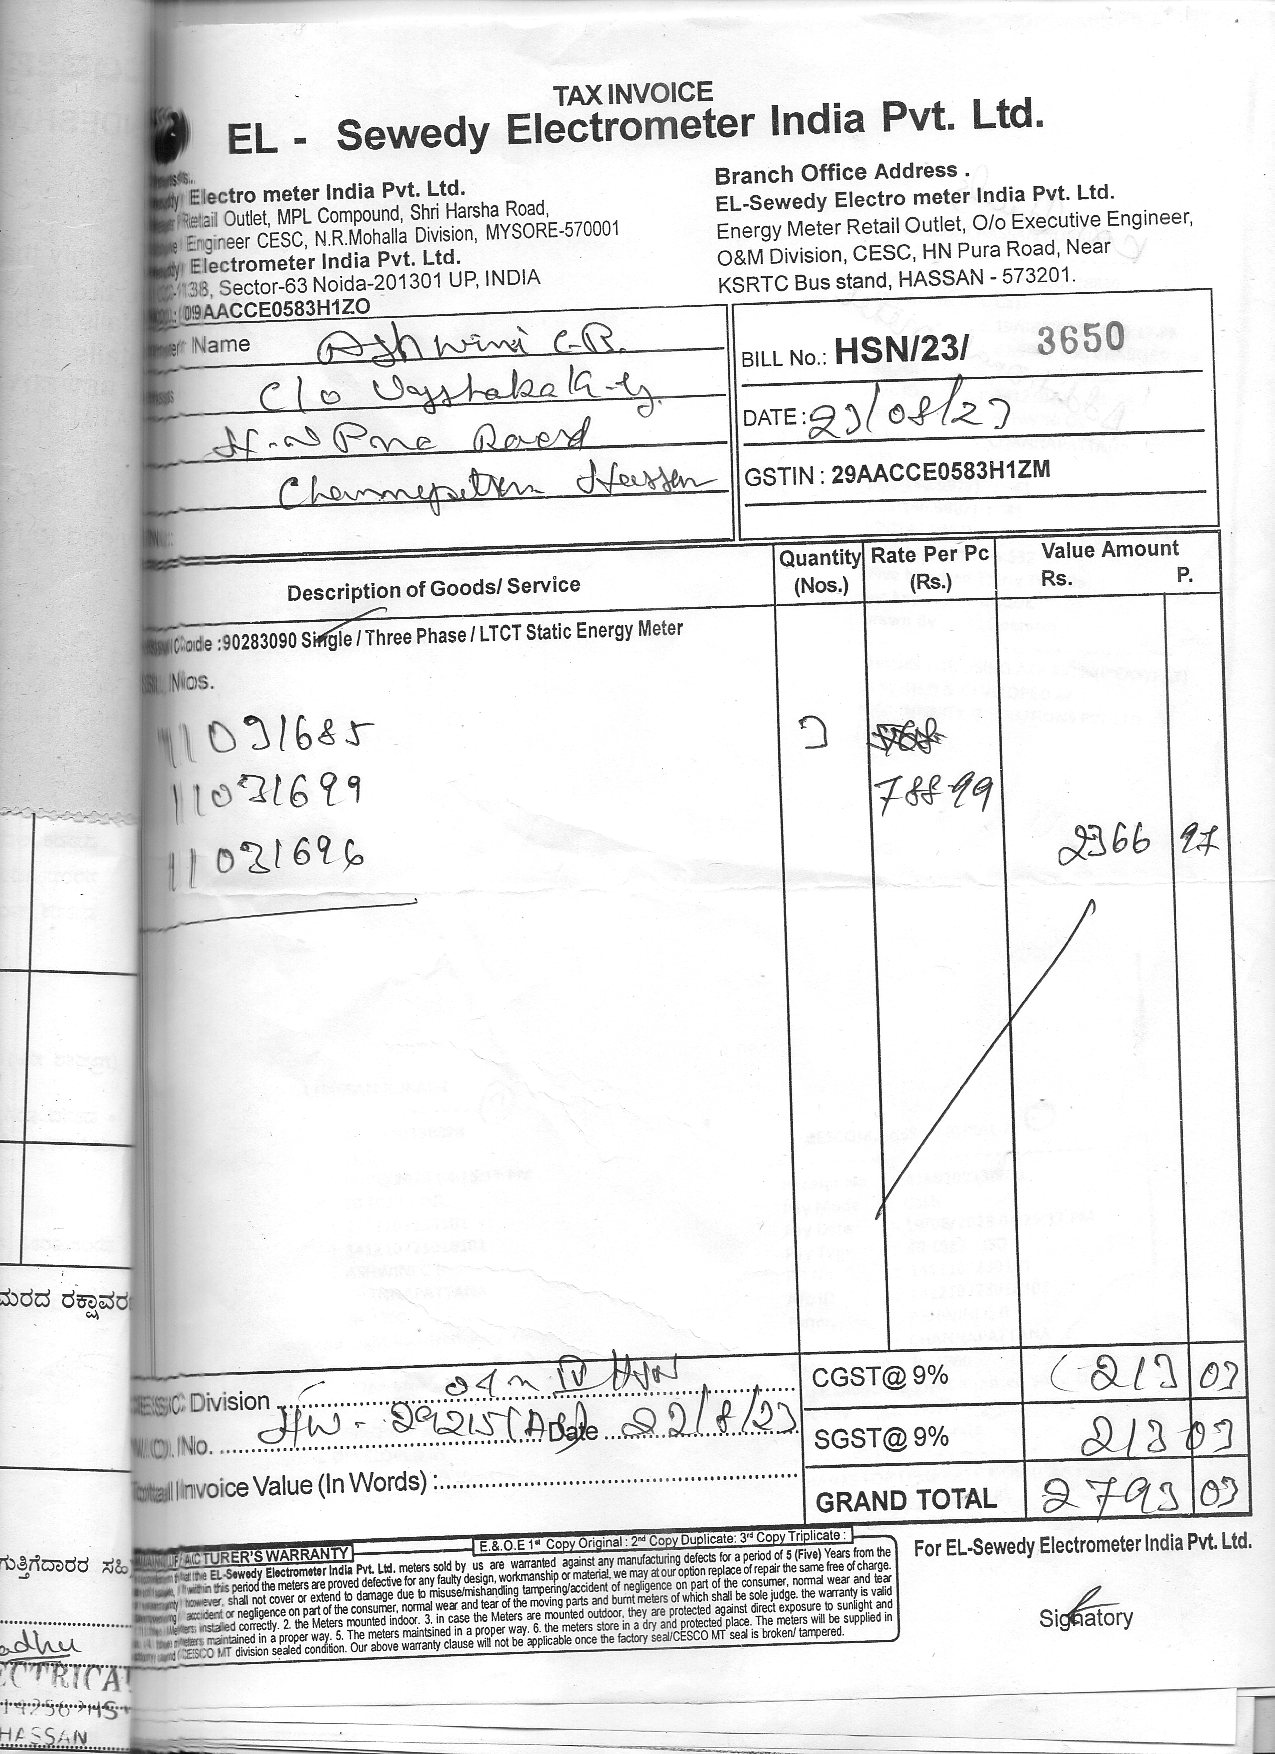 TAX INVOICE
EL - Sewedy Electrometer India Pvt. Ltd.
Electro meter India Pvt. Ltd.
Retail Outlet, MPL Compound, Shri Harsha Road,
Engineer CESC, N.R.Mohalla Division, MYSORE-570001
Electrometer India Pvt. Ltd.
Sector-63 Noida-201301 UP, INDIA
09AACCE0583H1ZO
Branch Office Address .
EL-Sewedy Electro meter India Pvt. Ltd.
Energy Meter Retail Outlet, O/o Executive Engineer,
O&M Division, CESC, HN Pura Road, Near
KSRTC Bus stand, HASSAN - 573201.
Name Ashwini C.R.
C/o
H-N Pura Road
Hassan
BILL No.: HSN/23/ 3650
DATE : 23/08/23
GSTIN : 29AACCE0583H1ZM
Description of Goods/ Service
Quantity (Nos.)
Rate Per Pc (Rs.)
Value Amount
Rs. P.
Code :90283090 Single / Three Phase / LTCT Static Energy Meter
Nos.
11031685 3
11031699 788-99
11031696 2366 97
CESC Division O&M IV HSN
CGST@ 9% 213 03
No. HW - 29215 Date 22/8/23
SGST@ 9% 213 03
Total Invoice Value (In Words) :
GRAND TOTAL 2793 03
E.& O.E 1st Copy Original : 2nd Copy Duplicate: 3rd Copy Triplicate :
MANUFACTURER'S WARRANTY
the EL-Sewedy Electrometer India Pvt. Ltd. meters sold by us are warranted against any manufacturing defects for a period of 5 (Five) Years from the
within this period the meters are proved defective for any faulty design, workmanship or material, we may at our option replace of repair the same free of charge.
however, shall not cover or extend to damage due to misuse/mishandling tampering/accident of negligence on part of the consumer, normal wear and tear
accident or negligence on part of the consumer, normal wear and tear of the moving parts and burnt meters of which shall be sole judge. the warranty is valid
installed correctly. 2. the Meters mounted indoor. 3. in case the Meters are mounted outdoor, they are protected against direct exposure to sunlight and
maintained in a proper way. 5. The meters maintsined in a proper way. 6. the meters store in a dry and protected place. The meters will be supplied in
CESCO MT division sealed condition. Our above warranty clause will not be applicable once the factory seal/CESCO MT seal is broken/ tampered.
For EL-Sewedy Electrometer India Pvt. Ltd.
Signatory
ರಕ್ಷಾವರ
ಗುತ್ತಿಗೆದಾರರ ಸಹಿ
HASSAN